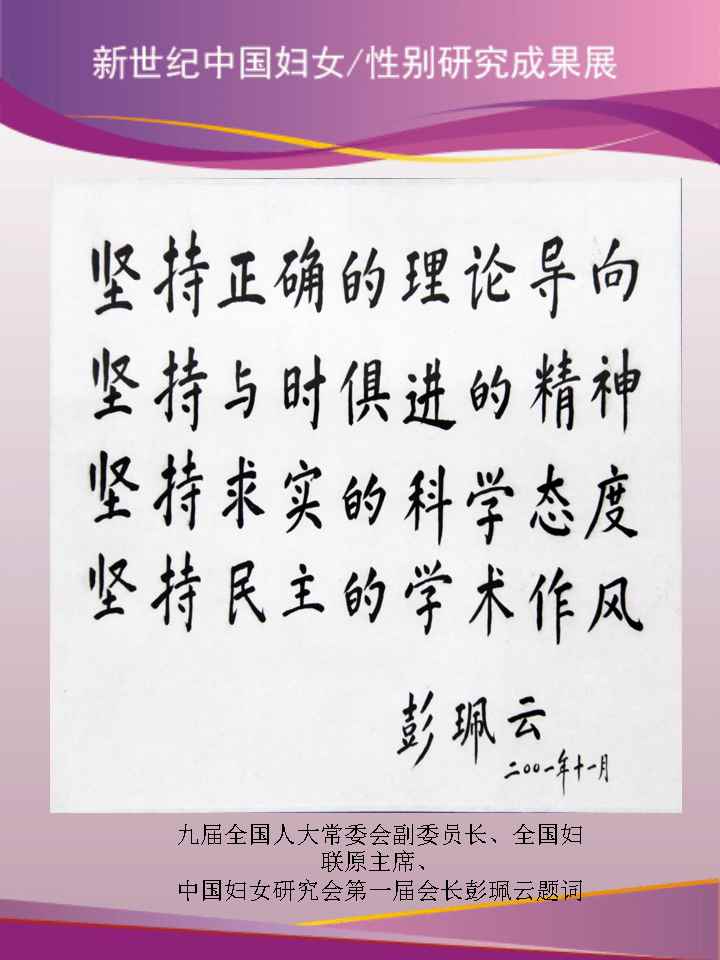 新世纪中国妇女/性别研究成果展
坚持正确的理论导向
坚持与时俱进的精神
坚持求实的科学态度
坚持民主的学术作风
彭珮云
二〇〇一年十一月
九届全国人大常委会副委员长、全国妇
联原主席、
中国妇女研究会第一届会长彭珮云题词